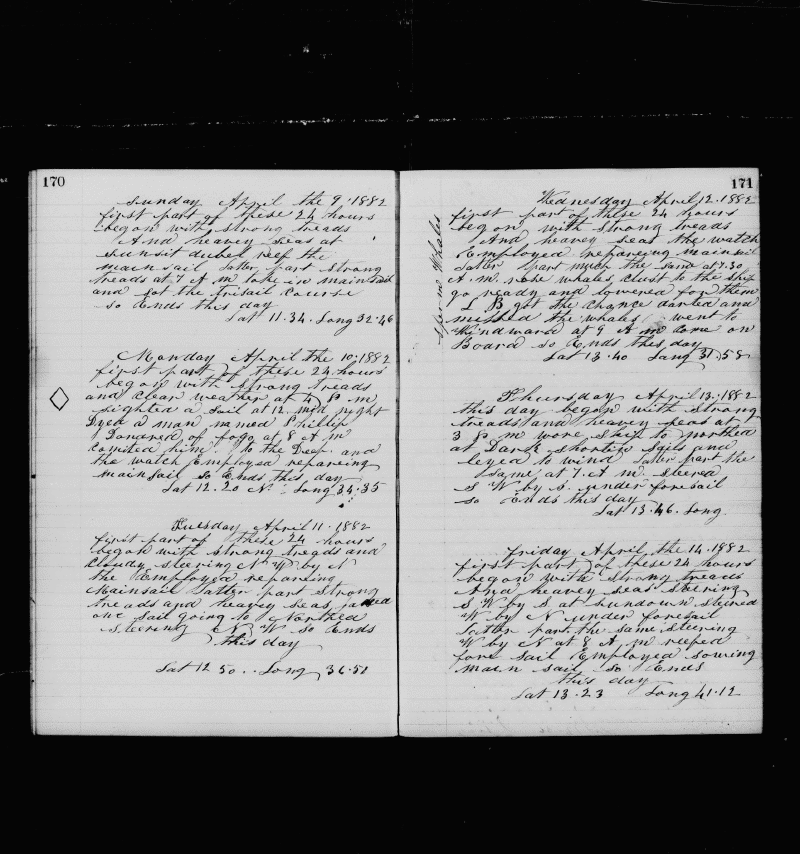 170
Sunday April the 9. 1882
first part of these 24 hours
began with strong treads
And heavey seas at
sunsit dubel reef the
mainsail latter part strong
treads at 7 A m toke in mainsail
and sot the trisail course
so Ends this day
Lat 11.34. Long 32.46
Monday April the 10. 1882
first part of these 24 hours
began with strong treads
and clear weather at 4 P m
sighted a sail at 12 mid night
Dyed a man named Phillip
of fogo at 8 A m
comited him to the Deep. and
the watch Employed repareing
mainsail so Ends this day
Lat 12.20 N. Long 34.35
Tuesday April 11. 1882
first part of these 24 hours
began with strong treads and
cloudy steering N W by N
the Employed reparing
Mainsail latter part strong
treads and heavey seas
one sail going to Northed
Steering N W so Ends
this day
Lat 12 50. Long 36.51
171
Sperm Whales
Wednesday April 12. 1882
first part of these 24 hours
began with strong treads
And heavey seas the watch
Employed repareing mainsail
latter part much the same at 7.30
A. m. rose whales clust to the ship
go ready and lowered for them
L B got the chance darted and
missed the whales went to
Windward at 9 A m come on
Board so Ends this day
Lat 13.40 Long 37.58
Thursday April 13. 1882
this day began with strong
treads and heavey seas at
3 P m wore ship to northed
at Dark shortin sails and
leyed to wind latter part the
same at 7. A m. steered
S W by S. under foresail
so Ends this day
Lat 13.46. Long.
Friday April the 14. 1882
first part of these 24 hours
began with strong treads
And heavey seas steering
S W by S at sundown steered
W by N under foresail
latter part the same steering
W by N at 8 A. m reefed
fore sail Employed sowing
main sail so Ends
this day
Lat 13.23 Long 41.12